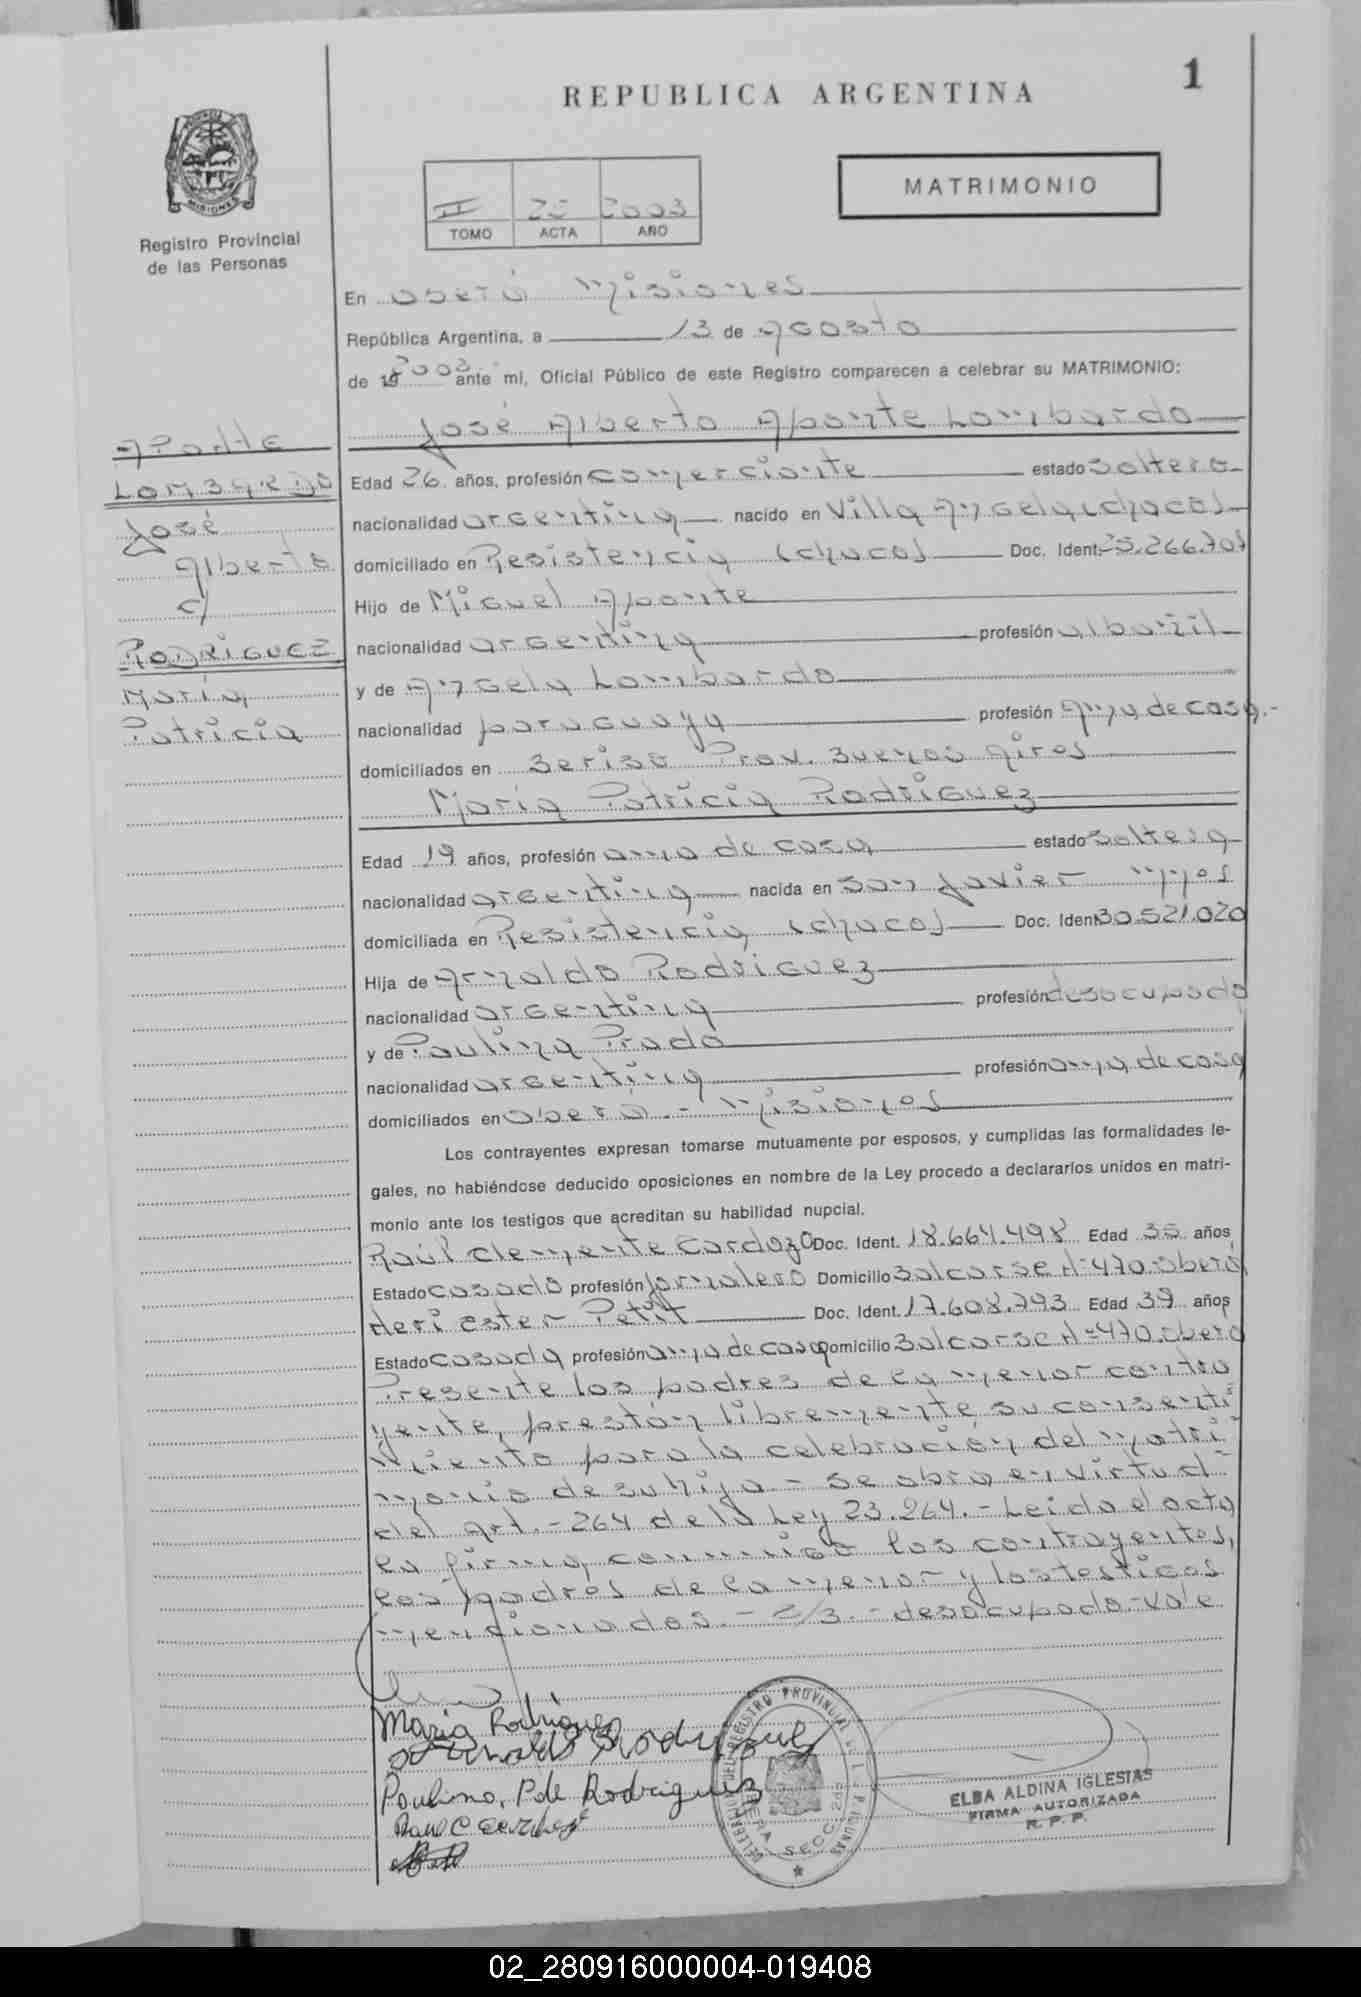 1
REPUBLICA ARGENTINA
MISIONES
Registro Provincial
de las Personas
II 2003
TOMO ACTA AÑO
MATRIMONIO
En Oberá Misiones
República Argentina, a 13 de agosto
de 19 2003 ante mi, Oficial Público de este Registro comparecen a celebrar su MATRIMONIO:
José Alberto Aponte Lombardo
APONTE
LOMBARDO
José
Alberto
c/
RODRIGUEZ
María
Patricia
Edad 26 años, profesión comerciante estado soltero
nacionalidad argentina nacido en Villa Angela (chaco)
domiciliado en Resistencia (chaco) Doc. Ident. 25.266.701
Hijo de Miguel Aponte
nacionalidad argentina profesión albañil
y de Angela Lombardo
nacionalidad paraguaya profesión ama de casa.-
domiciliados en Beriso Prov. Buenos Aires
María Patricia Rodriguez
Edad 19 años, profesión ama de casa estado soltera
nacionalidad argentina nacida en San Javier Mnes
domiciliada en Resistencia (chaco) Doc. Ident 30.521.020
Hija de Arnoldo Rodriguez
nacionalidad argentina profesión desocupado
y de Paulina Prado
nacionalidad argentina profesión ama de casa
domiciliados en Oberá.- Misiones
Los contrayentes expresan tomarse mutuamente por esposos, y cumplidas las formalidades le-
gales, no habiéndose deducido oposiciones en nombre de la Ley procedo a declararlos unidos en matri-
monio ante los testigos que acreditan su habilidad nupcial.
Raúl Clemente Cardozo Doc. Ident. 18.664.498 Edad 35 años
Estado casado profesión jornalero Domicilio Balcarse N=470-Oberá
Neri Ester Petit Doc. Ident. 17.608.793 Edad 39 años
Estado casada profesión ama de casa Domicilio Balcarse N=470.Oberá
Presente los padres de la menor contra
yente, prestan libremente su consenti
miento para la celebración del matri
monio de su hija - se obra en virtud
del Art.-264 de la Ley 23.264.- Leido el acta
la firma conmigo los contrayentes,
los padres de la menor y los testigos
mencionados.- E/3.-desocupado-Vale
Maria Rodriguez
Arnoldo Rodriguez
Paulina, P. de Rodriguez
Raul C Cardozo
DEL REGISTRO PROVINCIAL DE LAS PERSONAS
OBERA SECC. 2da
ELBA ALDINA IGLESIAS
FIRMA AUTORIZADA
R. P. P.
02_280916000004-019408